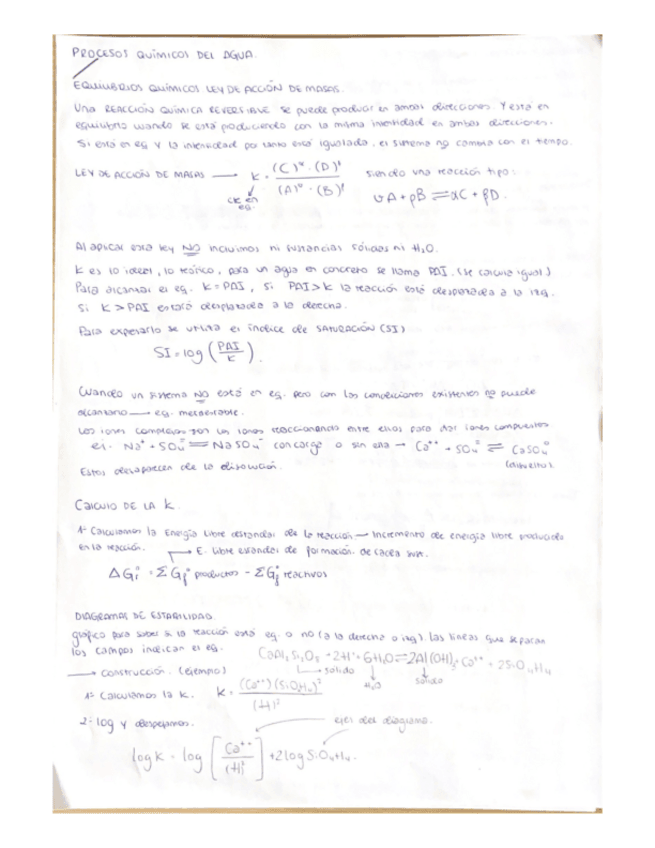 PROCESOS QUÍMICOS DEL AGUA.
EQUILIBRIOS QUÍMICOS LEY DE ACCIÓN DE MASAS.
Una REACCIÓN QUÍMICA REVERSIBLE se puede producir en ambas direcciones. Y está en
equilibrio cuando se está produciendo con la misma intensidad en ambas direcciones.
Si está en eq y la intensidad por tanto está igualada, el sistema no cambia con el tiempo.
LEY DE ACCIÓN DE MASAS → K = (C)^α · (D)^β / (A)^υ · (B)^ρ siendo una reacción tipo:
cte en eq. υA + ρB ⇌ αC + βD.
Al aplicar esta ley NO incluimos ni sustancias sólidas ni H2O.
K es lo ideal, lo teórico, para un agua en concreto se llama PAI. (se calcula igual)
Para alcanzar el eq. K = PAI, si PAI > K la reacción está desplazada a la izq.
Si K > PAI estará desplazada a la derecha.
Para expresarlo se utiliza el índice de SATURACIÓN (SI)
SI = log (PAI/K).
Cuando un sistema NO está en eq. pero con las condiciones existentes no puede
alcanzarlo → eq. metaestable.
Los iones complejos son los iones reaccionando entre ellos para dar iones compuestos
ej. Na+ + SO4= ⇌ NaSO4- con carga o sin ella → Ca++ + SO4= ⇌ CaSO4°
(disuelto)
Estos desaparecen de la disolución.
CALCULO DE LA K.
1º Calculamos la Energía libre estandar de la reacción → Incremento de energía libre producido
en la reacción. → E. libre estandar de formación de cada sust.
ΔGr° = ΣGf° productos - ΣGf° reactivos
DIAGRAMAS DE ESTABILIDAD
gráfico para saber si la reacción está eq. o no (a la derecha o izq). Las líneas que separan
los campos indican el eq. CaAl2Si2O8 + 2H+ + 6H2O ⇌ 2Al(OH)3 + Ca++ + 2SiO4H4
→ construcción. (ejemplo) sólido H2O sólido
1º Calculamos la K. K = (Ca++)(SiO4H4)² / (H)²
2º log y despejamos. ejes del diagrama.
log K = log [Ca++ / (H)²] + 2 log SiO4H4.